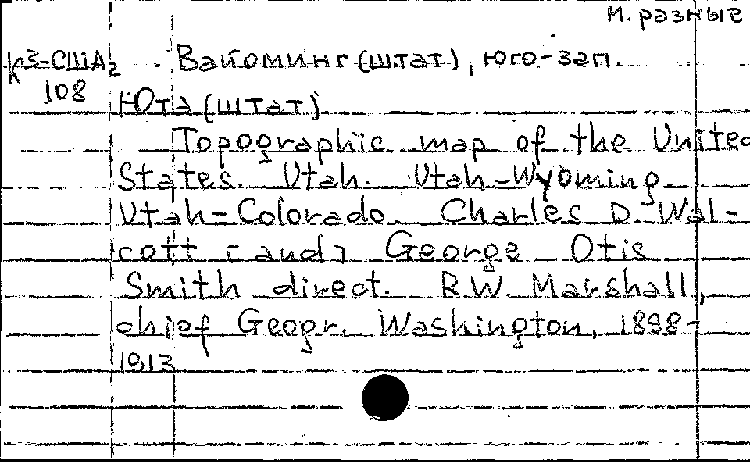 М. разные
К3-США2 Вайоминг (штат), юго-зап.
108
Юта (штат)
Topographic map of the United
States. Utah. Utah-Wyoming.
Utah-Colorado. Charles D. Wal-
cott [and] George Otis
Smith direct. R.W. Marshall,
chief Geogr. Washington, 1898-
1913